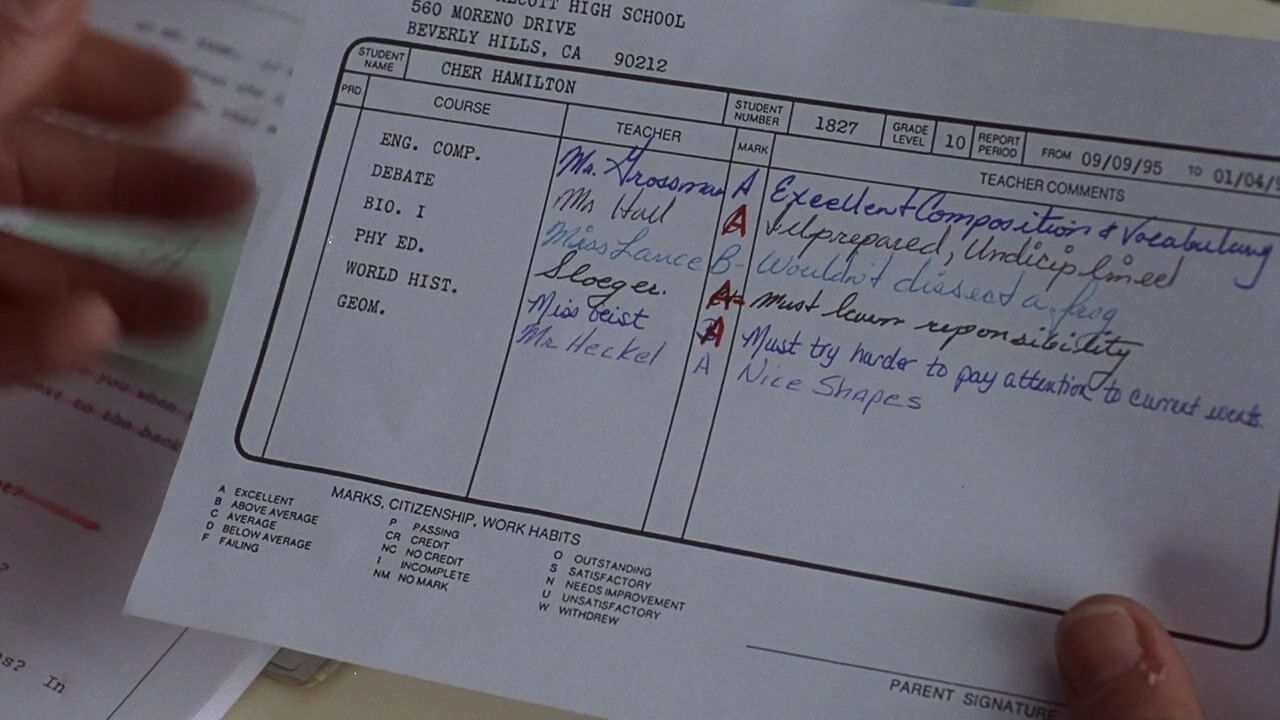 ALCOTT HIGH SCHOOL
560 MORENO DRIVE
BEVERLY HILLS, CA 90212
STUDENT NAME CHER HAMILTON STUDENT NUMBER 1827 GRADE LEVEL 10 REPORT PERIOD FROM 09/09/95 TO 01/04/9
PRD COURSE TEACHER MARK TEACHER COMMENTS
ENG. COMP. Mr. Grossman A Excellent Composition & Vocabulary
DEBATE Mr Hall A Illprepared, Undiciplined
BIO. I Miss Lance B- Wouldn't dissect a frog
PHY ED. Stoeger. A- Must learn reponsibility
WORLD HIST. Miss Geist A Must try harder to pay attention to current events.
GEOM. Mr. Heckel A Nice Shapes
MARKS, CITIZENSHIP, WORK HABITS
A EXCELLENT
B ABOVE AVERAGE
C AVERAGE
D BELOW AVERAGE
F FAILING
P PASSING
CR CREDIT
NC NO CREDIT
I INCOMPLETE
NM NO MARK
O OUTSTANDING
S SATISFACTORY
N NEEDS IMPROVEMENT
U UNSATISFACTORY
W WITHDREW
PARENT SIGNATURE
you when
to the back
In